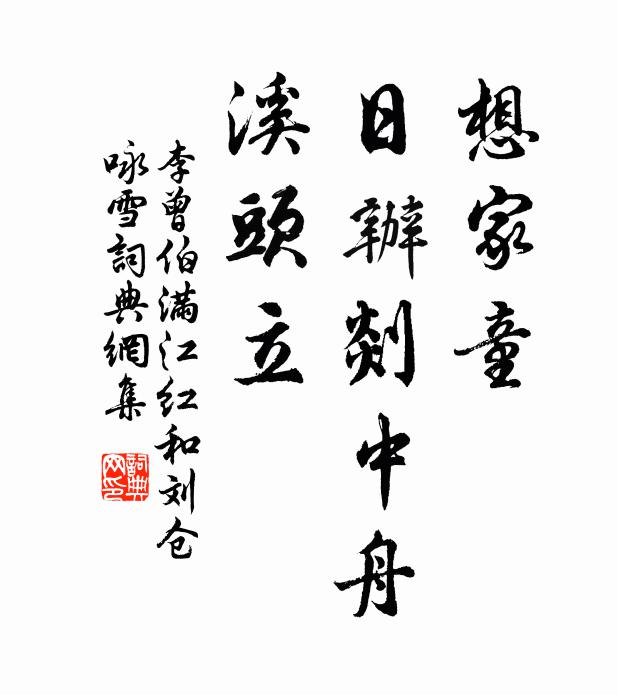 想家童
日辦剡中舟
溪頭立
李曾伯满江红和刘仓
咏雪詞典網集
詞典网印